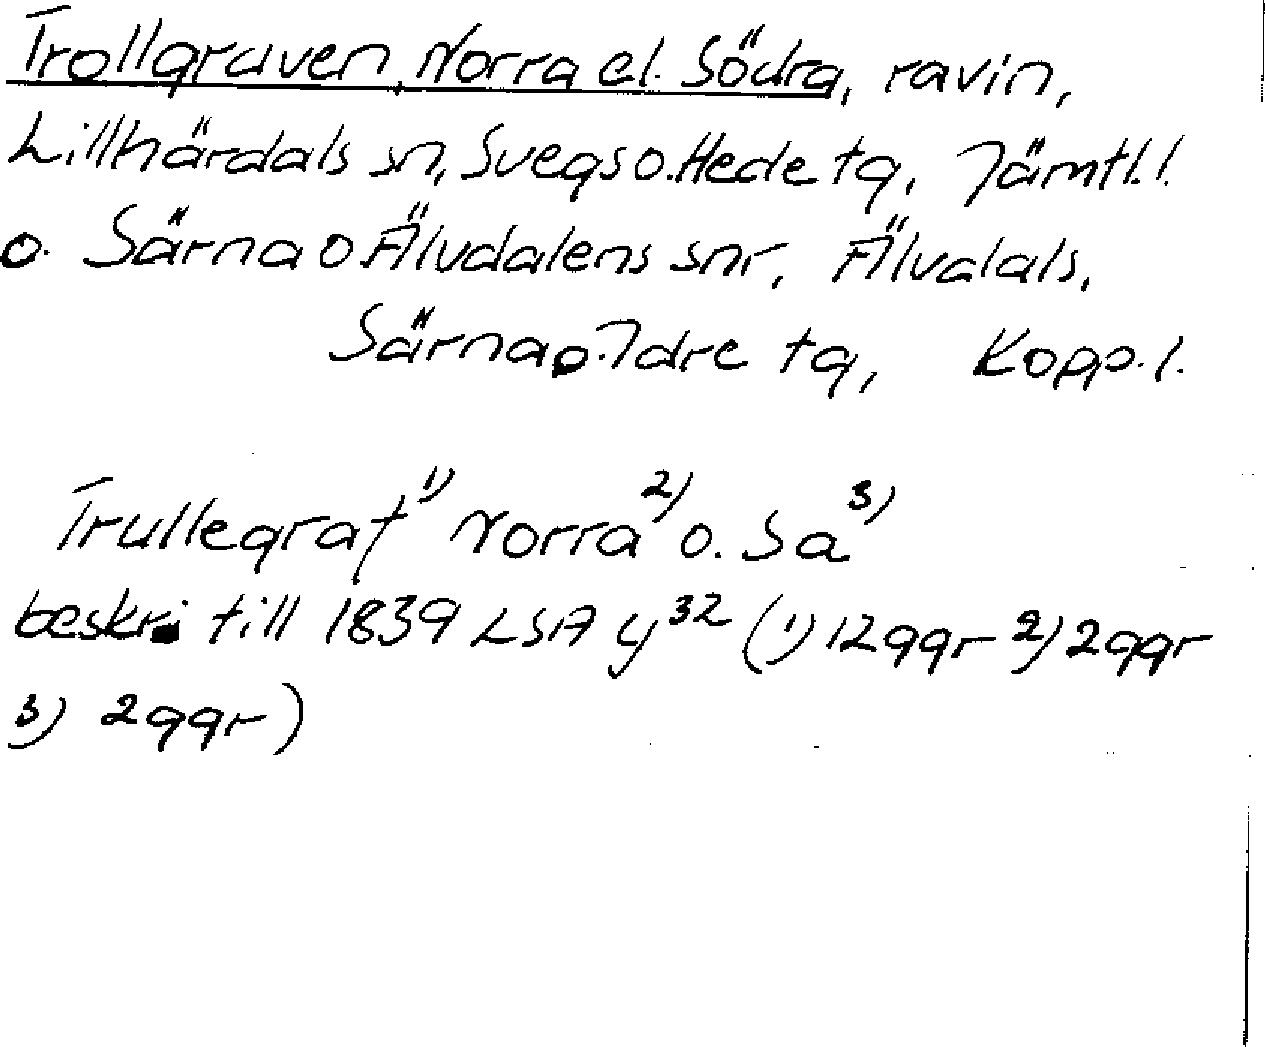 Trollgraven, Norra el. Södra, ravin,
Lillhärdals sn, Svegs o. Hede tg, Jämtl. l.
o. Särna o Älvdalens snr, Älvdals,
Särna o. Idre tg, Kopp. l.
Trullegraf 1) Norra 2) o. Sa 3)
beskr. till 1839 LSA y 32 (1) 12 ggr 2) 2 ggr
3) 2 ggr)